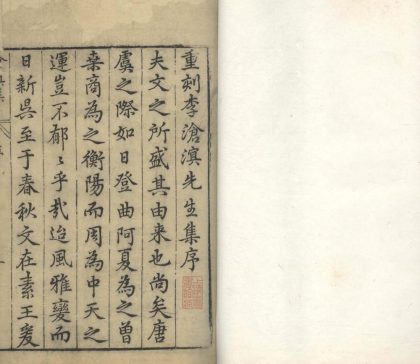 重刻李滄溟先生集序
夫文之所盛其由来也尚矣唐
虞之際如日登曲阿夏為之曽
桒商為之衡陽而周為中天之
運豈不郁〻乎㢤迨風雅變而
日新吳至于春秋文在素王爰